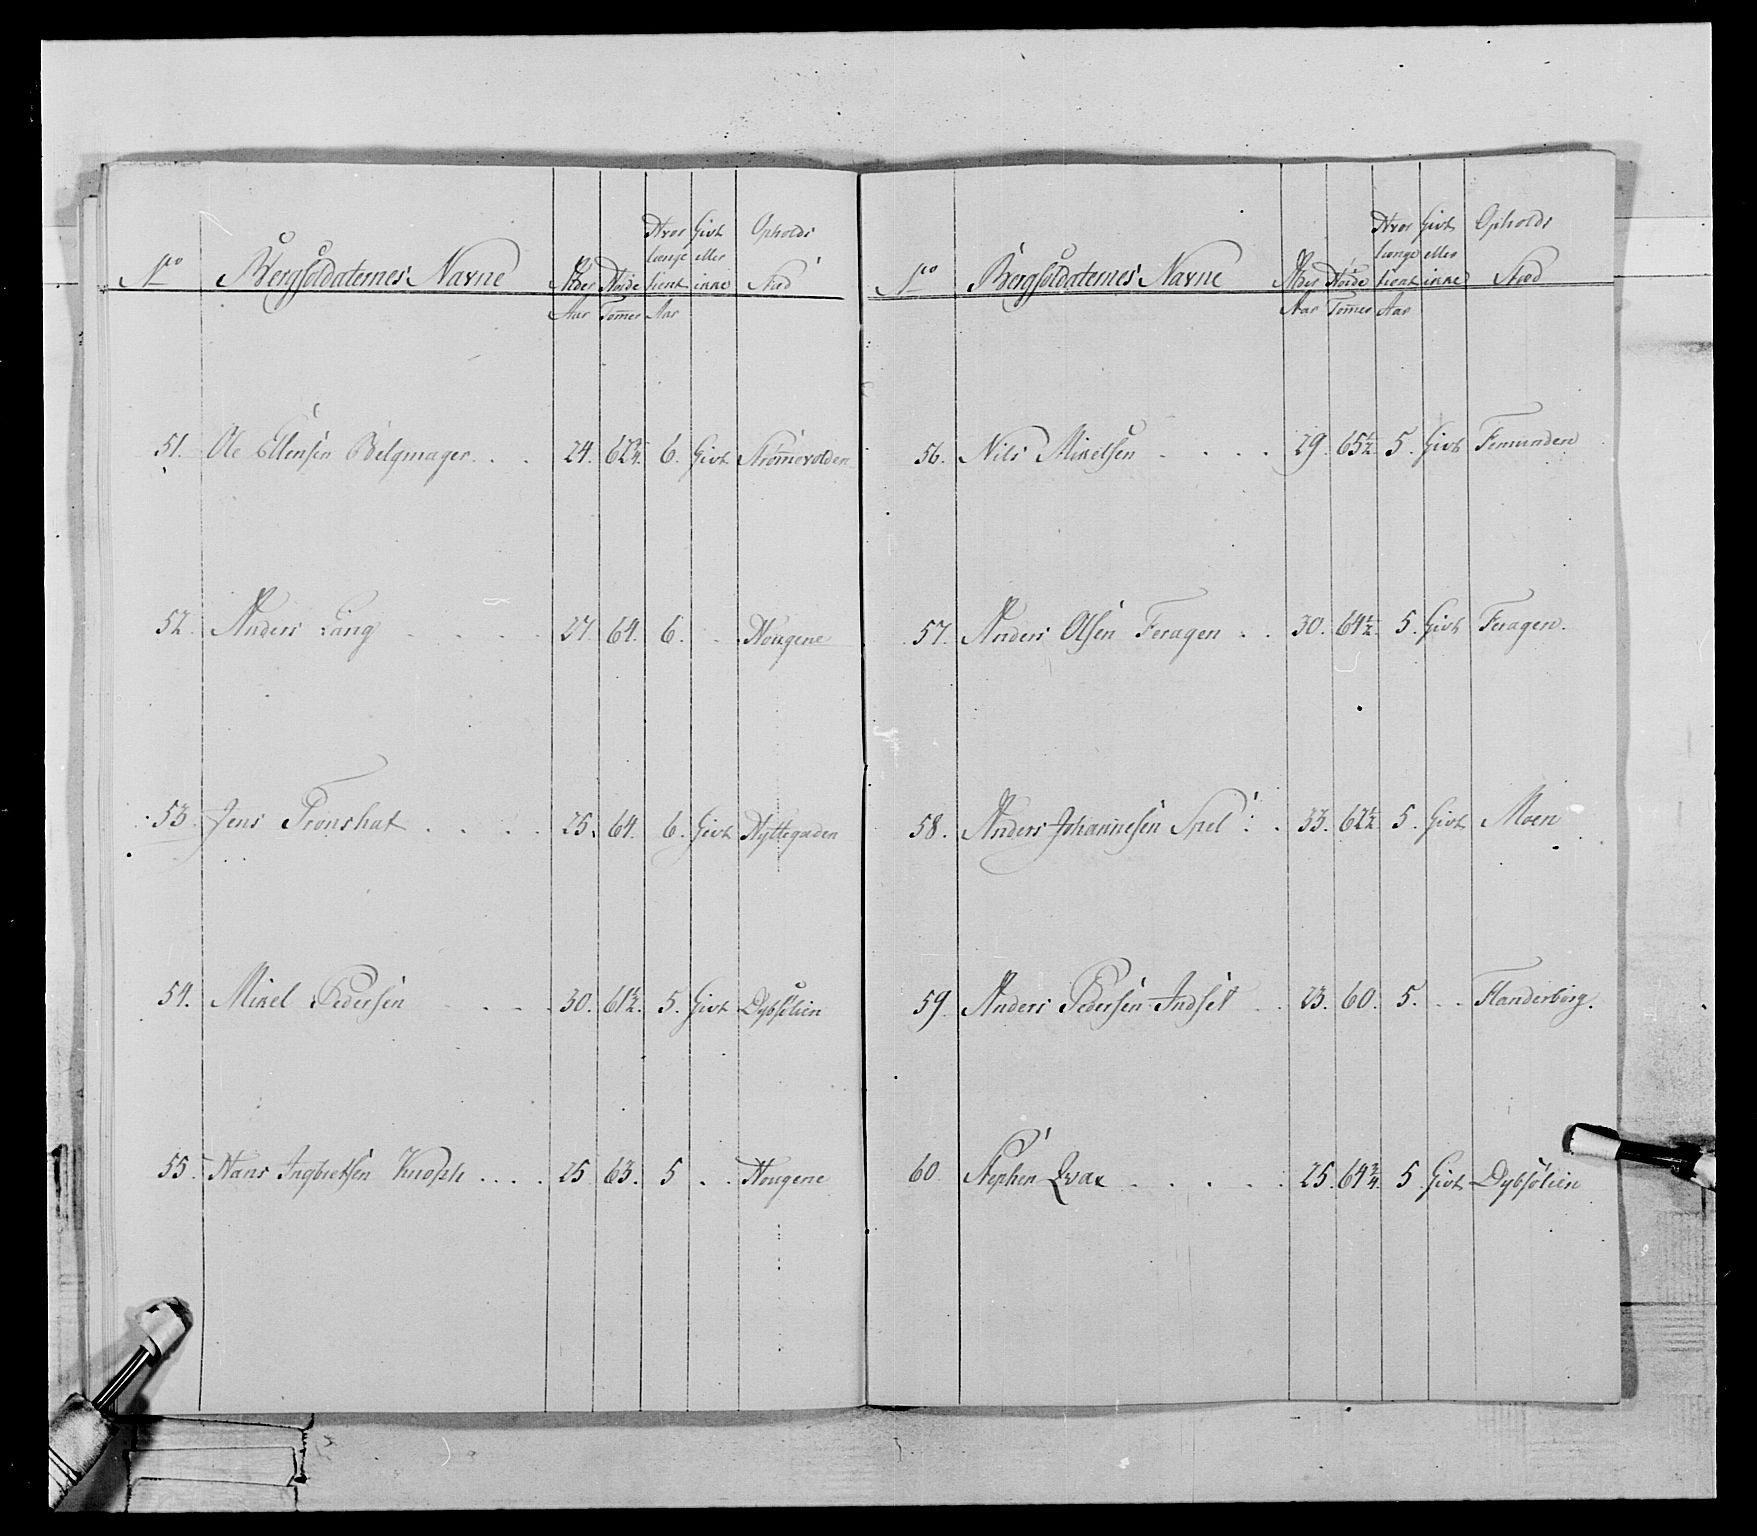 No Bergsoldaternes Navne Alder Høide Hvor længe tient Givt eller ikke Opholds Stæd
Aar Tommer Aar
51. Ole Ellensen Belgmager . . . 24. 62 3/4. 6. Givt Strømevolden
52. Anders Lang . . . . 27. 64. 6. . . Hougene
53. Jens Tronshat . . . . 25. 64. 6. Givt Hyttegaden
54. Mikel Pedersen . . . 30. 61 1/2. 5. Givt Dybsølien
55. Hans Ingbretsen Knoph . . . . 25. 63. 5 . . Hougene
No Bergsoldaternes Navne Alder Høide Hvor længe tient Givt eller ikke Opholds Stæd
Aar Tommer Aar
56. Nils Mikelsen . . . . 29. 65 1/2. 5. Givt Femunden
57. Anders Olsen Feragen . . 30. 64 1/2. 5. Givt Feragen.
58. Anders Johannesen Spel . . 33. 62 1/2. 5. Givt Moen
59. Anders Pedersen Indset . . 23. 60. 5. . . Flanderborg.
60. Stephen Qvax . . . . . 25. 64 3/4. 5. Givt Dybsølien